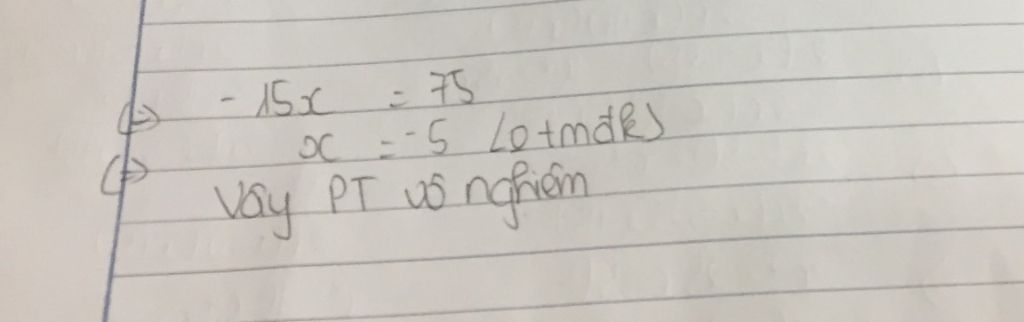 <=> - 15x = 75
<=> x = -5 (otmđk)
Vậy PT vô nghiệm